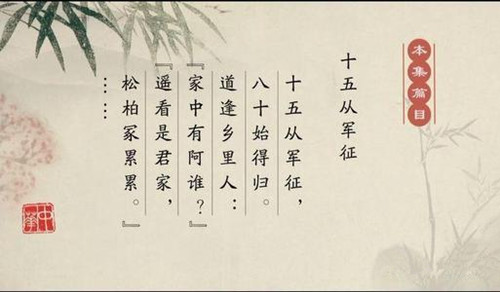 本集篇目
十五从军征
十五从军征,
八十始得归。
道逢乡里人:
『家中有阿谁?』
『遥看是君家,
松柏冢累累。』
……